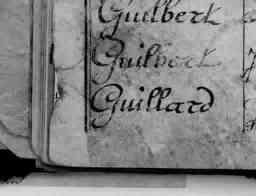 Guilbert
Guilbert
Guillard